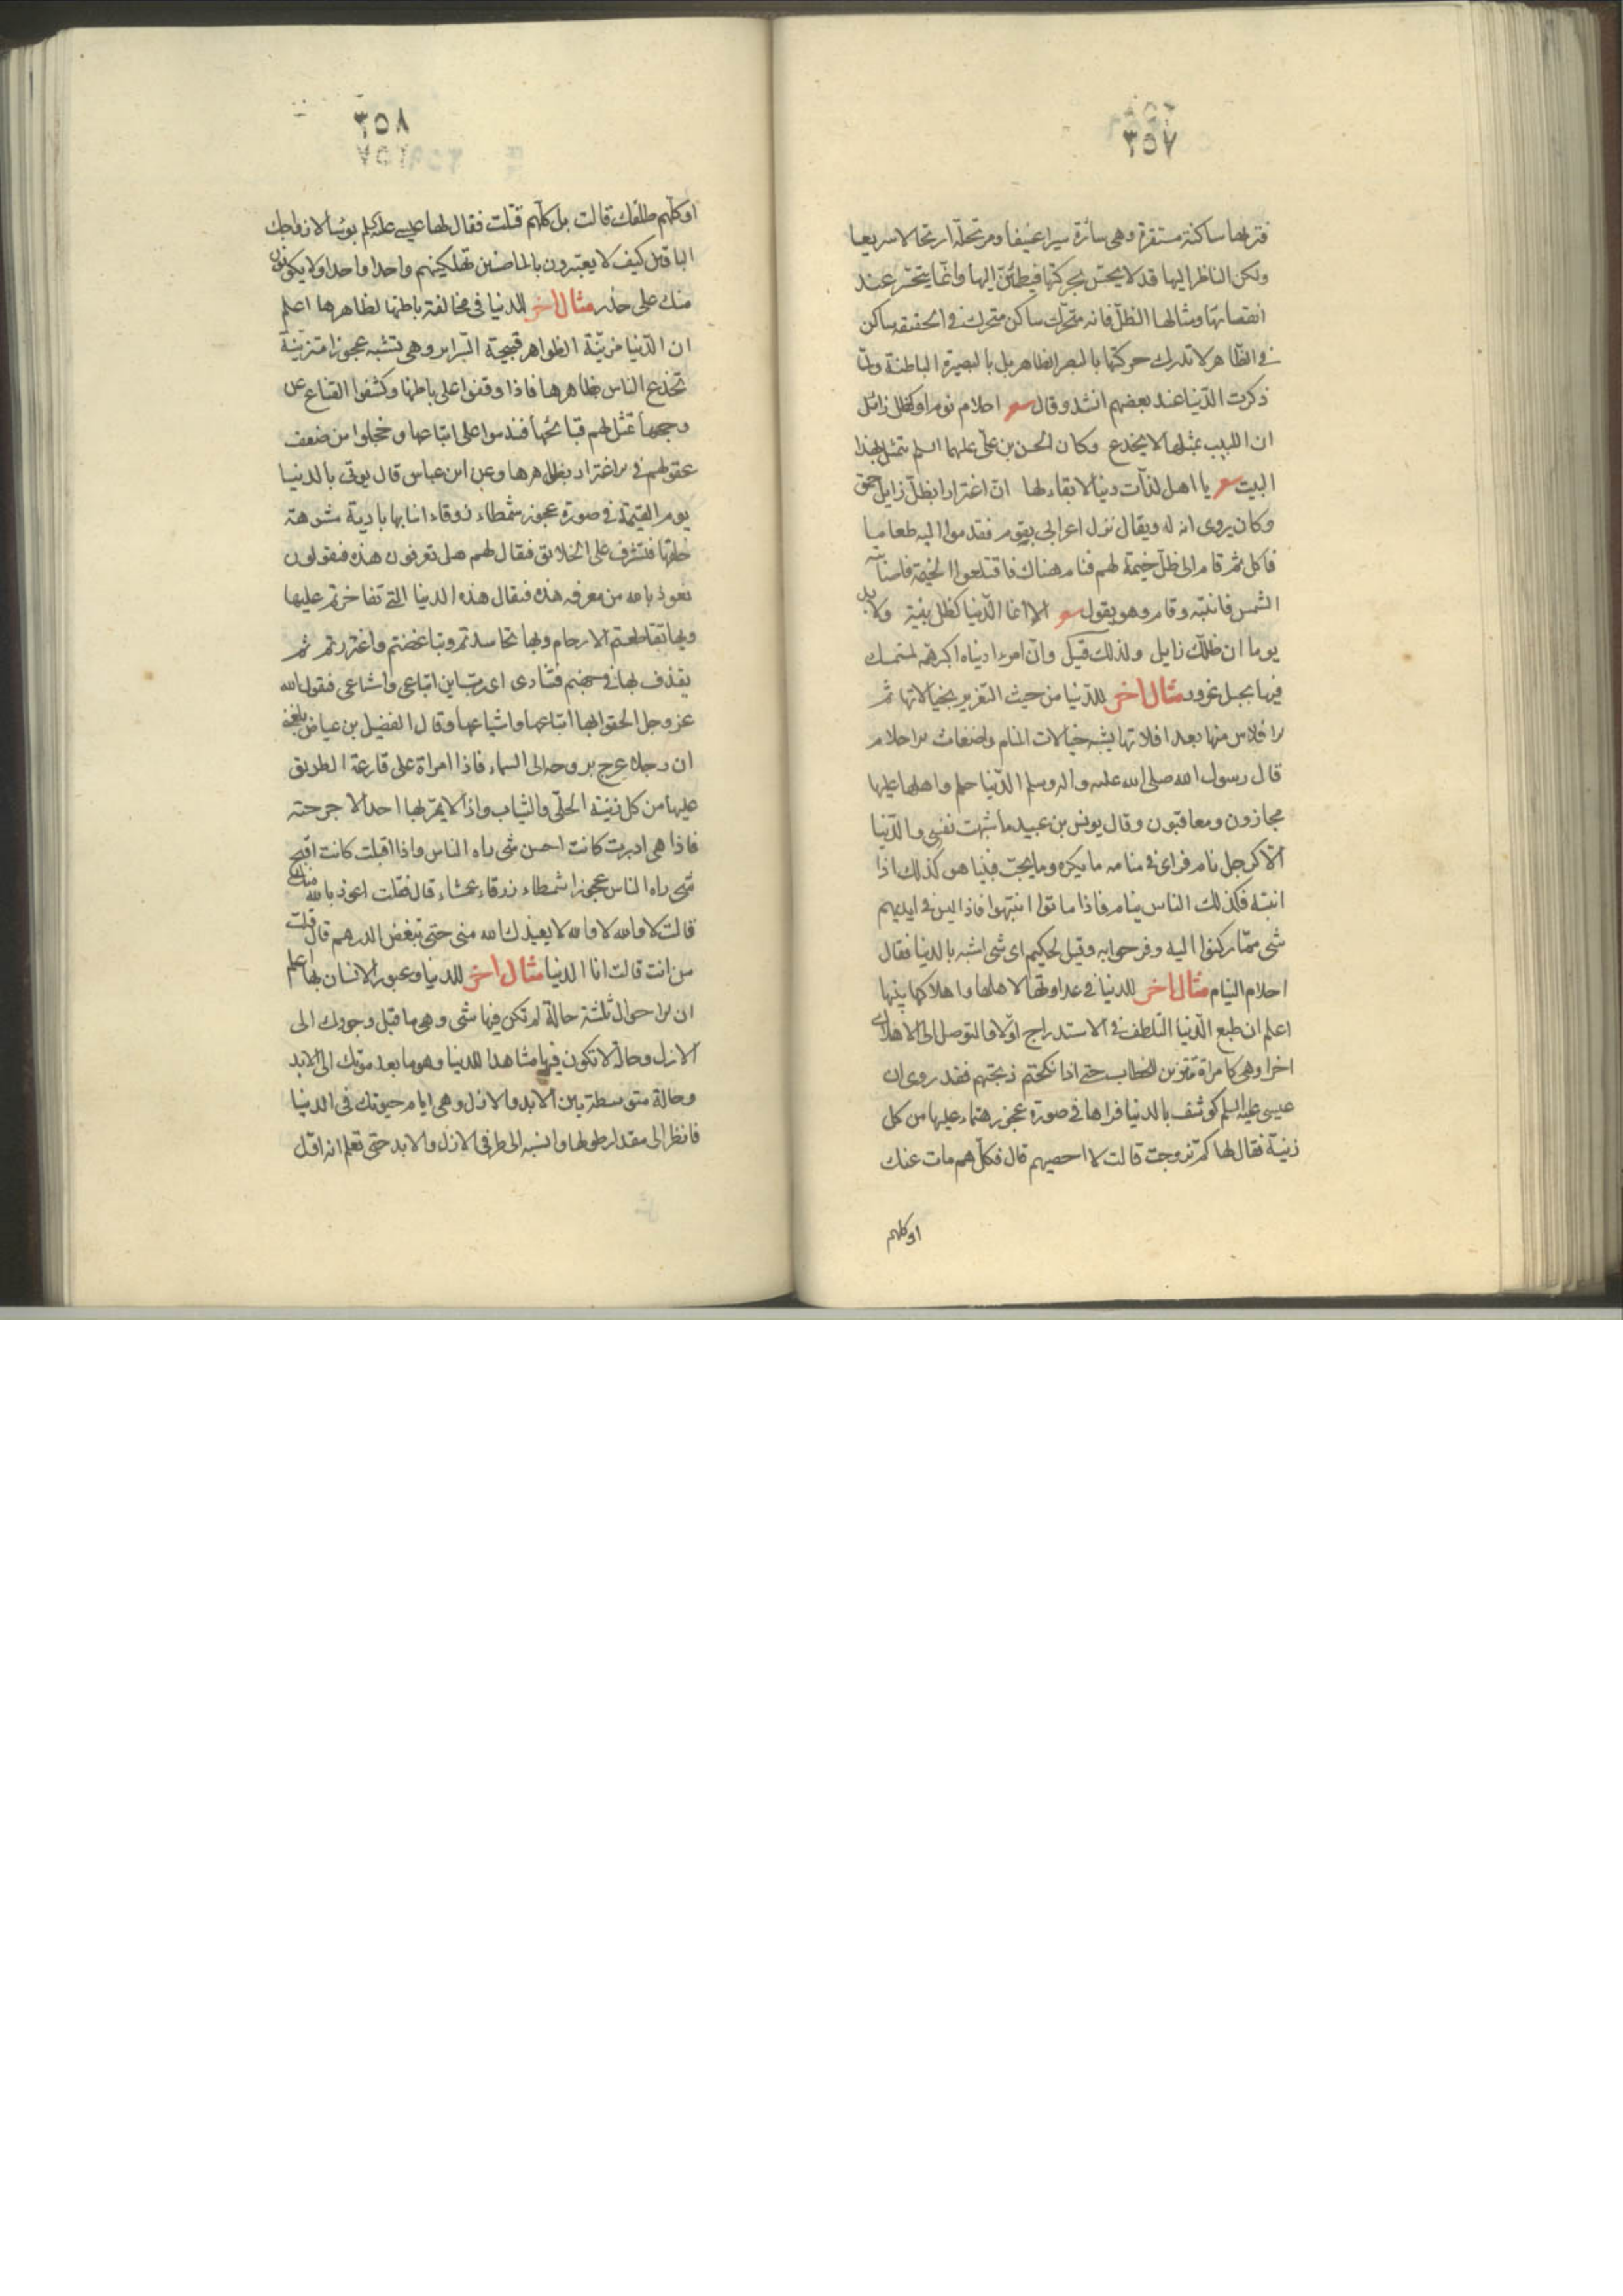 ٣٥٧
فتريها ساكنة مستقرة وهى سائرة سيرا عنيفا ومرتحلة ارتحالا سريعا
ولكن الناظر اليها قد لا يحس بحركتها فيطمئن اليها وانما يتحسر عند
انقضائها ومثالها الظل فانه متحرك ساكن متحرك فى الحقيقه ساكن
فى الظاهر لا تدرك حركتها بالبصر الظاهر بل بالبصيرة الباطنة ولما
ذكرت الدنيا عند بعضهم انشد وقال شعر احلام نوم او كظل زائل
ان اللبيب بمثلها لا يخدع وكان الحسن بن على عليهما السلم يتمثل بهذا
البيت شعر يا اهل لذات دنيا لا بقاء لها ان اغترارا بظل زايل حمق
وكان يروى انه له ويقال نزل اعرابى بقوم فقدموا اليه طعاما
فاكل ثم قام الى ظل خيمة لهم فنام هناك فاقتلعوا الخيمة فاصابته
الشمس فانتبه وقام وهو يقول شعر الا انما الدنيا كظل بنية ولا بد
يوما ان ظلك زايل ولذلك قيل وان امرءا دنياه اكبر همه لمستمسك
فيها بحبل غرور مثال اخر للدنيا من حيث التغرير بخيالاتها ثم
الافلاس منها بعد افلاتها يشبه خيالات المنام واضغاث الاحلام
قال رسول الله صلى الله عليه واله وسلم الدنيا حلم واهلها عليها
مجازون ومعاقبون وقال يونس بن عبيد ما شبهت نفسى والدنيا
الا كرجل نام فراى فى منامه ما يكره وما يحب فبينما هو كذلك اذا
انتبه فكذلك الناس ينام فاذا ماتوا انتبهوا فاذا ليس فى ايديهم
شى مما ركنوا اليه وفرحوا به وقيل لحكيم اى شى اشبه بالدنيا فقال
احلام النيام مثال اخر للدنيا فى عداوتها لاهلها واهلاكها بنيها
اعلم ان طبع الدنيا التلطف فى الاستدراج اولا والتوصل الى الاهلاك
اخرا وهى كامراة تتزين للخطاب حتى اذا نكحتهم ذبحتهم فقد روى ان
عيسى عليه السلم كوشف بالدنيا فراها فى صورة عجوز هتماء عليها من كل
زينة فقال لها كم تزوجت قالت لا احصيهم قال فكلهم مات عنك
او كلهم
٣٥٨
او كلهم طلقك قالت بل كلهم قتلت فقال لها عيسى عليه السلم بؤسا لازواجك
الباقين كيف لا يعتبرون بالماضين تهلكينهم واحدا واحدا ولا يكونون
منك على حذر مثال اخر للدنيا فى مخالفة باطنها لظاهرها اعلم
ان الدنيا مزينة الظواهر قبيحة السراير وهى تشبه عجوزا متزينة
تخدع الناس بظاهرها فاذا وقفوا على باطنها وكشفوا القناع عن
وجهها تمثل لهم قبائحها فندموا على اتباعها وخجلوا من ضعف
عقولهم فى الاغترار بظاهرها وعن ابن عباس قال يوتى بالدنيا
يوم القيمة فى صورة عجوز شمطاء زرقاء انيابها بادية مشوهة
خلقها فتشرف على الخلايق فيقال لهم هل تعرفون هذه فيقولون
نعوذ بالله من معرفه هذه فيقال هذه الدنيا التى تفاخرتم عليها
وبها تقاطعتم الارحام وبها تحاسدتم وتباغضتم واغتررتم ثم
يقذف بها فى جهنم فتنادى اى رب اين اتباعى واشياعى فيقول الله
عز وجل الحقوا بها اتباعها واشياعها وقال الفضيل بن عياض بلغنى
ان رجلا عرج بروحه الى السماء فاذا امراة على قارعة الطريق
عليها من كل زينة الحلى والثياب واذا لا يمر بها احد الا جرحته
فاذا هى ادبرت كانت احسن شى راه الناس واذا اقبلت كانت اقبح
شى راه الناس عجوزا شمطاء زرقاء عمشاء قال فقلت اعوذ بالله منك
قالت لا والله لا والله لا يعيذك الله منى حتى تبغض الدرهم قال قلت
من انت قالت انا الدنيا مثال اخر للدنيا وعبور الانسان بها اعلم
ان الاحوال ثلثة حالة لم تكن فيها شى وهى ما قبل وجودك الى
الازل وحالة لا تكون فيها مشاهدا للدنيا وهو ما بعد موتك الى الابد
وحالة متوسطة بين الابد والازل وهى ايام حيوتك فى الدنيا
فانظر الى مقدار طولها وانسبه الى طرفى الازل والابد حتى تعلم انه اقل